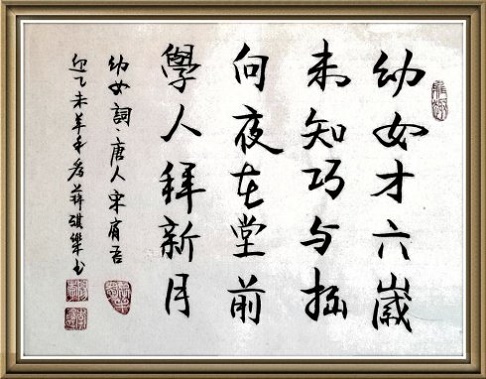 幼女才六歲
未知巧与拙
向夜在堂前
學人拜新月
幼女詞·唐人
乙未羊年